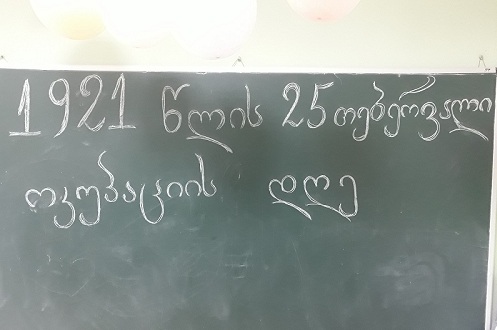 1921 წლის 25 თებერვალი
ოკუპაციის დღე